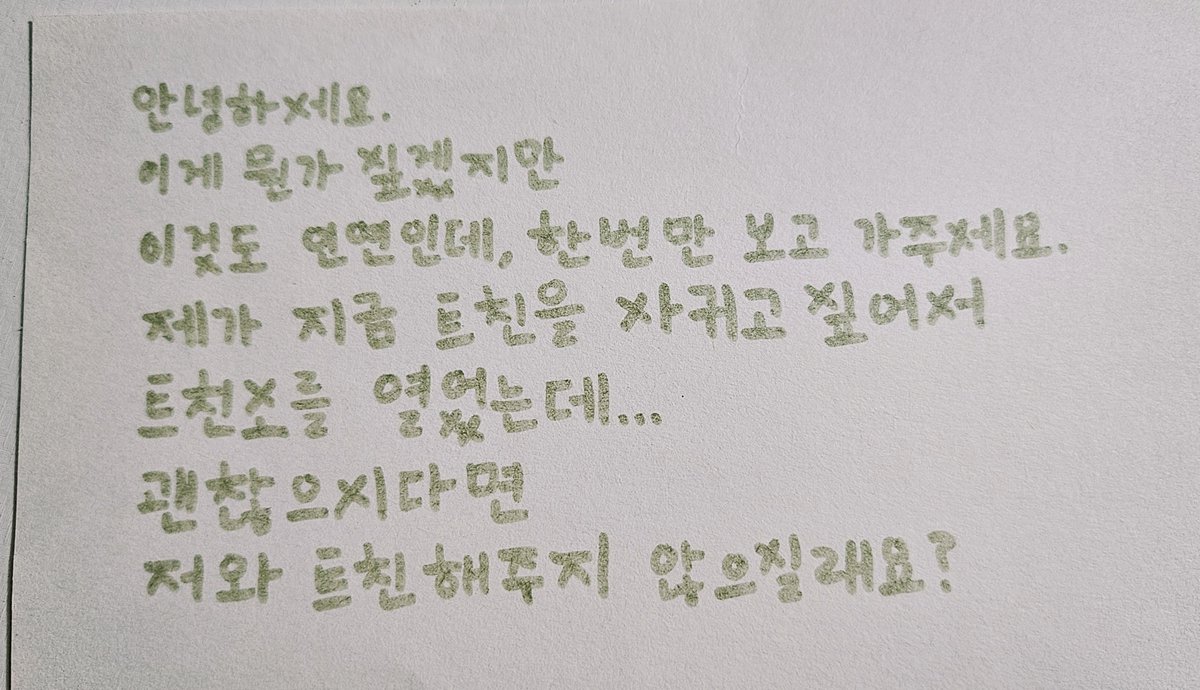 안녕하세요.
이게 뭔가 싶겠지만
이것도 인연인데, 한번만 보고 가주세요.
제가 지금 트친을 사귀고 싶어서
트친소를 열었는데...
괜찮으시다면
저와 트친해주지 않으실래요?